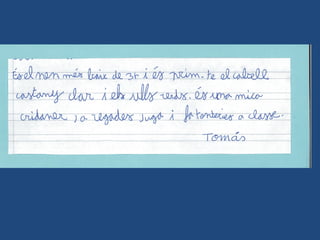 És el nen més baix de 3r i és prim. te el cabell
castany clar i els ulls verds. és una mica
cridaner, a vegades juga i fa tonteries a classe.
Tomás